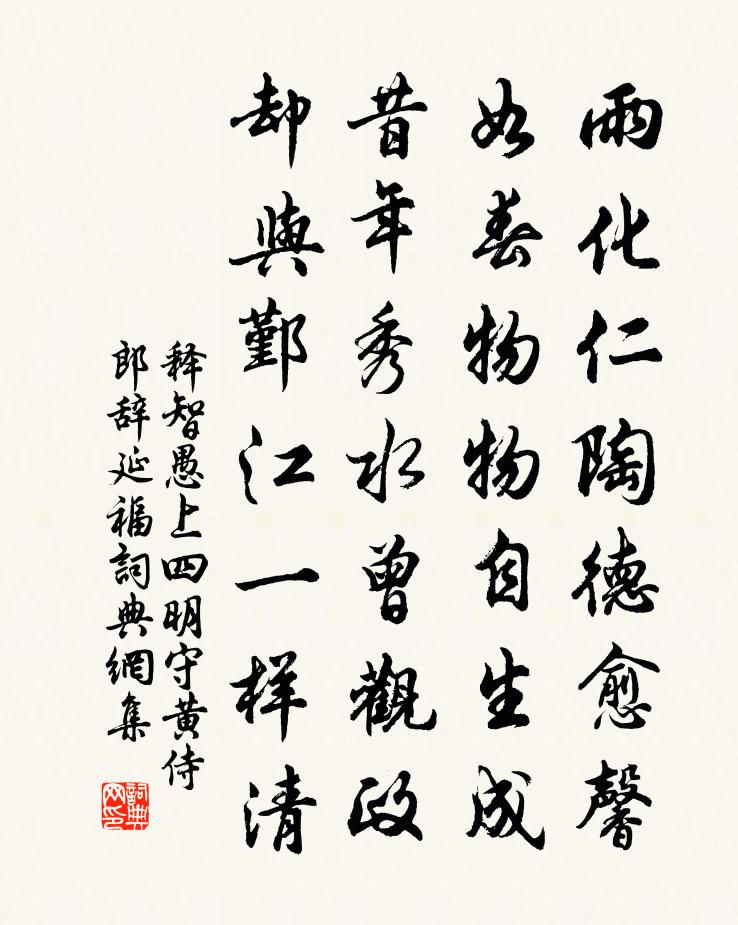 雨化仁陶德愈馨
如春物物自生成
昔年秀水曾觀政
却與鄞江一样清
释智愚上四明守黄侍
郎辞延福詞典網集
詞典网印